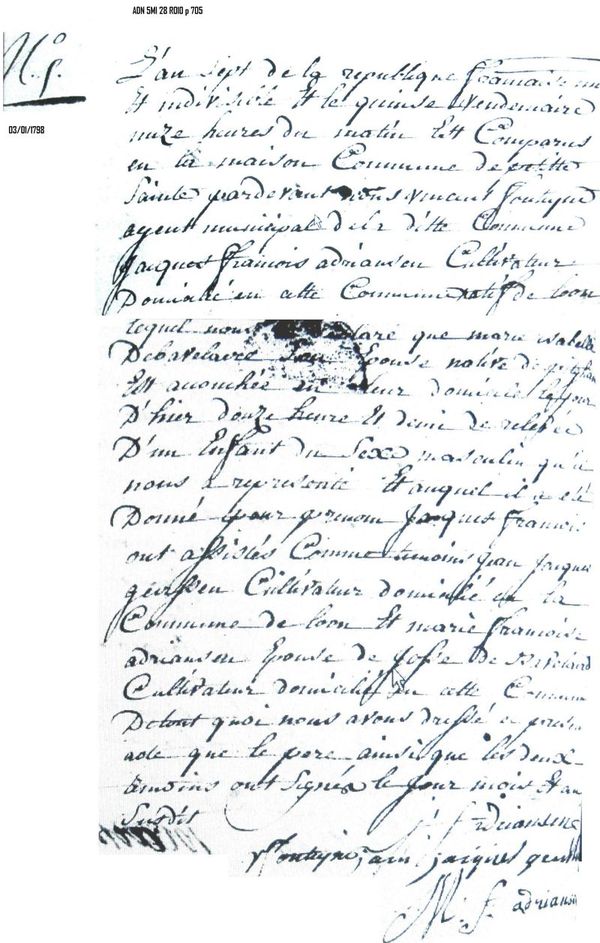 ADN 5MI 28 R010 p 705
N.º 5.
03/01/1798
L'an sept de la republique francaise un
Et indivisible Et le quinse Vendemaire
onze heures du matin Est Comparus
en la maison Commune de petitte
Sainte pardevant nous vincent
agent municipal de la ditte Commune
Jacques francois adriansen Cultivateur
Domicilié en cette Commune natif de loon
lequel nous declaré que marie isabelle
Son Epouse native de
Est accouchée en leur domicile le jour
D'hier douze heure Et demi de relevée
D'un Enfant du Sexe masculin qu'il
nous a représenté Et auquel il a été
Donné pour prenom Jacques francois
ont assistés Comme temoins jean jacques
Cultivateur domicilié en la
Commune de loon Et marie francoise
adriansen Epouse de
Cultivateur domicilié en cette Commune
De tout quoi nous avons dressé le present
acte que le pere ainsi que les deux
temoins ont signés le jour mois Et an
Susdit
j. f. adriansens
jean jacques
M. f. adriansen